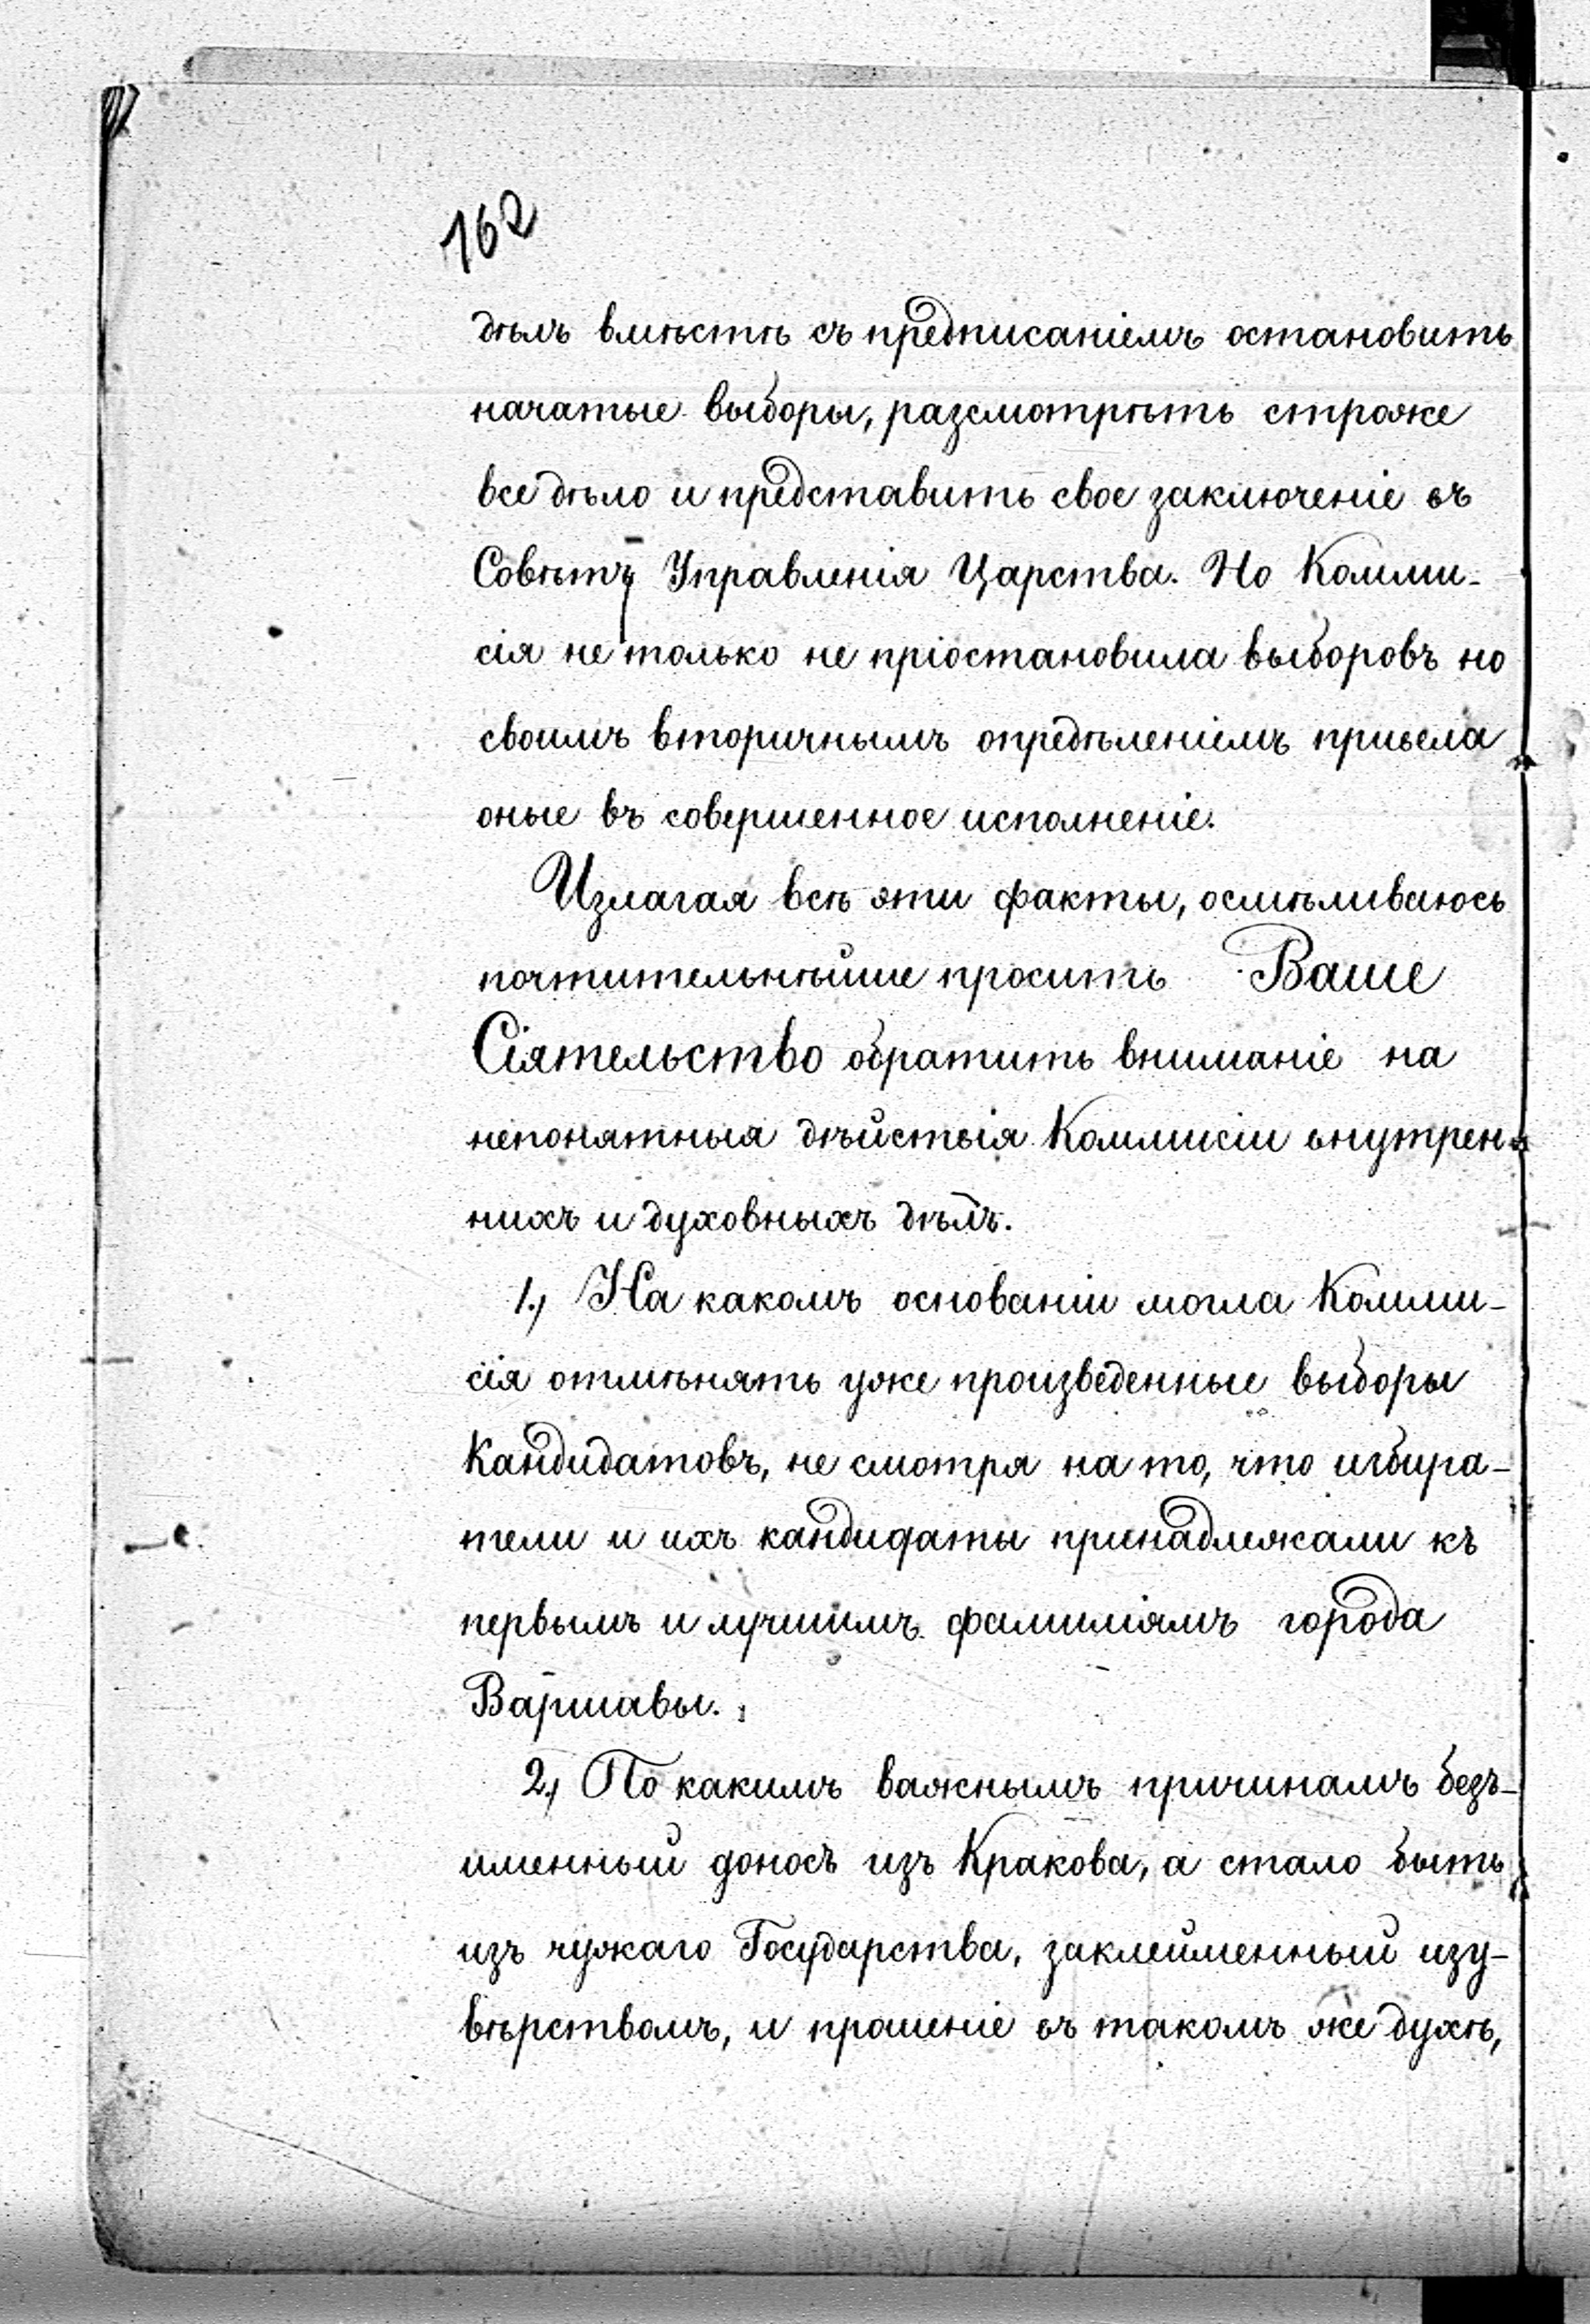 162
дѣлъ вмѣстѣ съ предписаніемъ остановить
начатые выборы, разсмотрѣть строже
все дѣло и представить свое заключеніе въ
Совѣтъ Управленія Царства. Но Комми-
сія не только не пріостановила выборовъ но
своимъ вторичнымъ опредѣленіемъ привела
оные въ совершенное исполненіе.
Излагая всѣ эти факты, осмѣливаюсь
почтительнѣйше просить Ваше
Сіятельство обратить вниманіе на
непонятныя дѣйствія Коммисіи внутрен-
нихъ и духовныхъ дѣлъ.
1., На какомъ основаніи могла Комми-
сія отмѣнять уже произведенные выборы
Кандидатовъ, не смотря на то, что избира-
тели и ихъ кандидаты принадлежали къ
первымъ и лучшимъ фамиліямъ города
Варшавы.
2., По какимъ важнымъ причинамъ безъ-
именный доносъ изъ Кракова, а стало быть
изъ чужаго Государства, заклейменный изу-
вѣрствомъ, и прошеніе въ такомъ же духѣ,